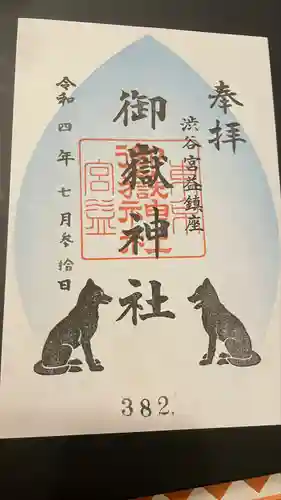 奉拝
渋谷宮益鎮座
御嶽神社
令和四年七月参拾日
宮益
御嶽神社
382.